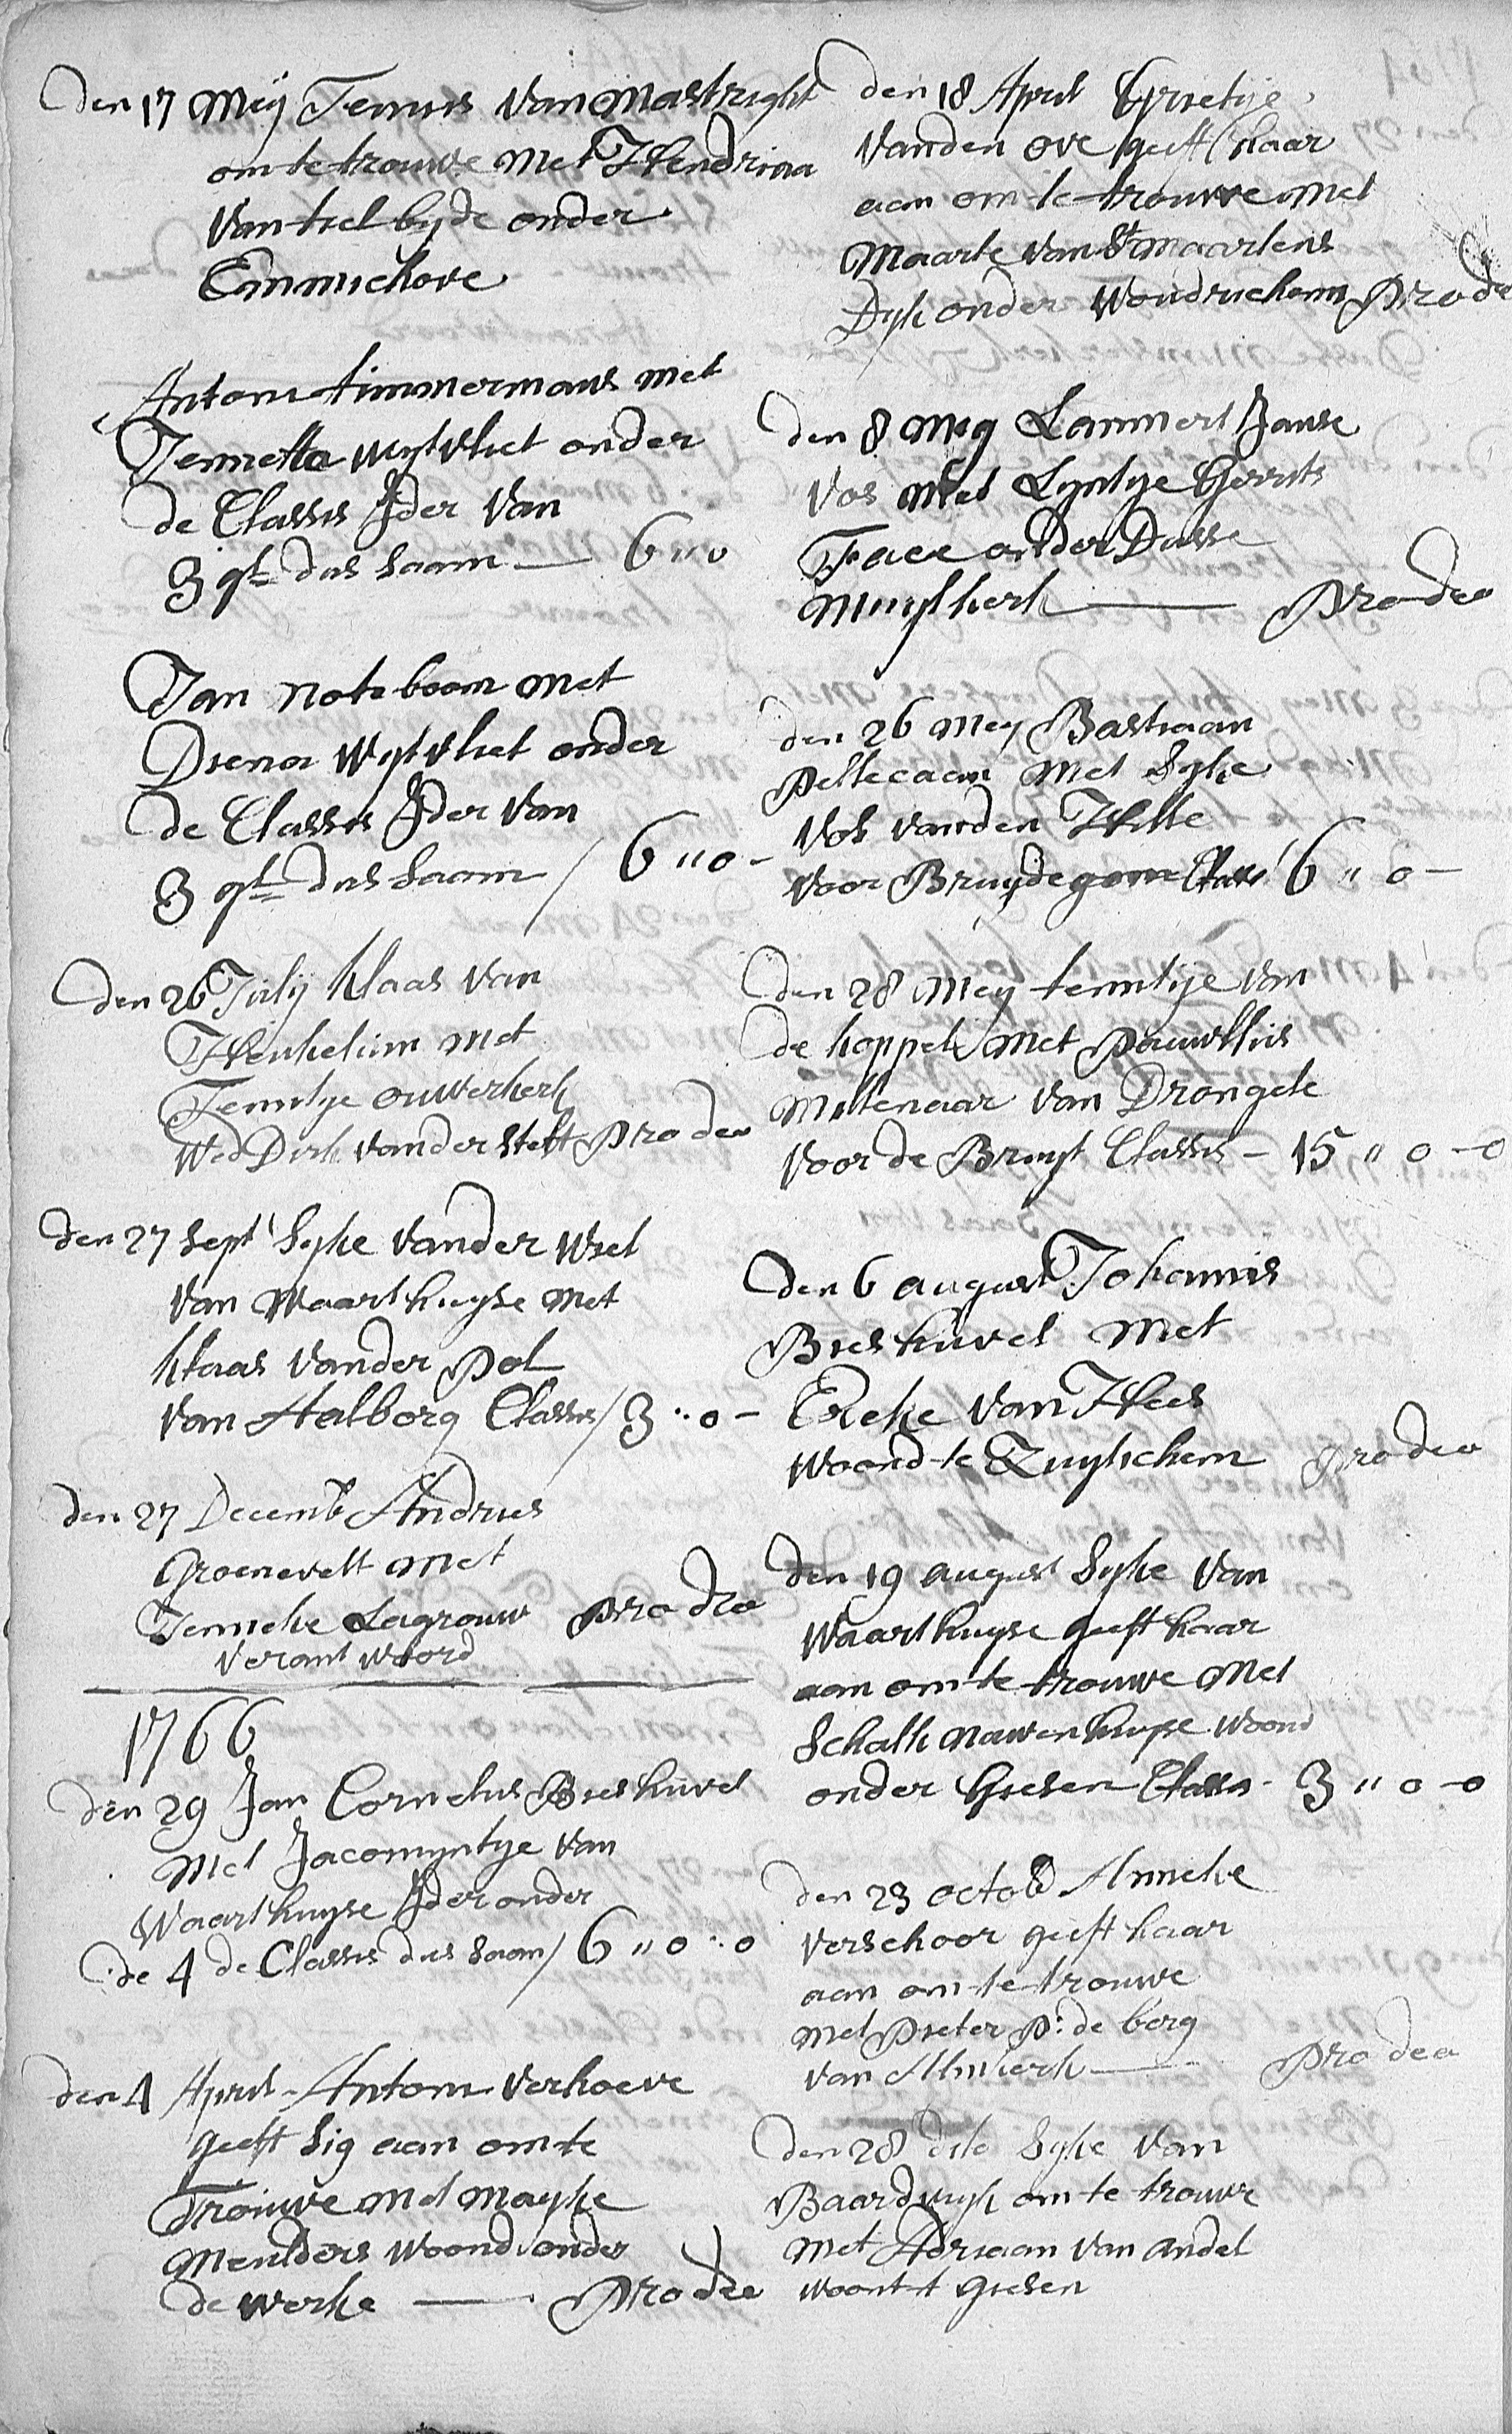 Den 17 Meij Teunis van Mastright
om te trouwe met Hendrina
van tiel byde onder
Emmichove
Antoni timmermans met
Jennetta wijtvliet onder
de Classis Jder van
3 gl dus saam — 6 "0
Jan noteboom met
Diena wijtvliet onder
de Classis Jder van
3 gl dus saam / 6 "0 -
Den 26 July klaas van
Heukelum met
Teuntje ouwerkerk
Wed Dirk vander stelt Pro deo
Den 27 Sept Sijke vander wiel
van Waarthuyse met
klaas vander Pol
van Aalborg Classis / 3 "0 -
Den 27 Decemb Andries
Groenevelt met
Jenneke Lagrouw Pro deo
verant woord
1766
Den 29 Jan Cornelis Bieshuvel
Met Jacomyntje van
Waarthuyse Jder onder
de 4 de Classis dus saam / 6 "0 "0
den 4 April Antoni verhoeve
geeft sig aan om te
Trouwe met mayke
Meulders woond onder
de werke — Pro deo
den 18 April Grietije
vanden ove geeft haar
aan om te trouwe met
Maarte van St maartens
Dyk onder Woudrichem Pro deo
den 8 Mey Lammert Janse
Vos met Lyntije Gerrits
Face onder Dusse
Muylkerk — Pro deo
den 26 Mey Bastiaan
Pellecaan met Sijke
Vos vanden Hille
voor Bruydegom Classis 6 " 0 -
Den 28 Mey teuntije van
de koppel met Pauwllus
Millenaar van Drongele
voor de Bruyt Classis - 15 " 0 - 0
Den 6 august Johannis
Bieshuvel met
Eleke van Hees
woond te Zuylichem Pro deo
den 19 august Sijke van
Waarthuyse geeft haar
aan om te trouwe met
Schalk nawenhuyse woond
onder Giesen Classis - 3 " 0 - 0
den 23 octob Anneke
verschoor geeft haar
aan om te trouwe
met Pieter P: de berg
van Almkerk — Pro deo
den 28 dito Sijke van
Baardwyk om te trouwe
met Adriaan van andel
woont t giesen